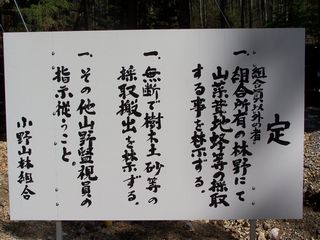 定
組合員以外の者
一、組合所有の林野にて
山菜茸地蜂等の採取
する事を禁ずる。
一、無断で樹木土砂等の
採取搬出を禁ずる。
一、その他山野監視員の
指示従うこと。
小野山林組合